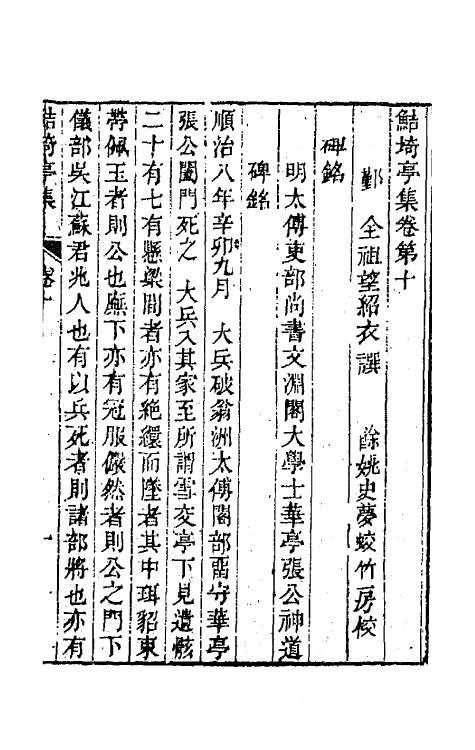 鮚埼亭集卷第十
鄞　全祖望紹衣譔　　餘姚史夢蛟竹房校
碑銘
明太傅吏部尚書文淵閣大學士華亭張公神道
碑銘
順治八年辛卯九月　大兵破翁洲太傅閣部留守華亭
張公闔門死之　大兵入其家至所謂雪交亭下見遺骸
二十有七有懸梁間者亦有絶繯而墜者其中珥貂束
帶佩玉者則公也廡下亦有冠服儼然者則公之門下
儀部吳江蘇君兆人也有以兵死者則諸部將也亦有
鮚埼亭集　卷十　一